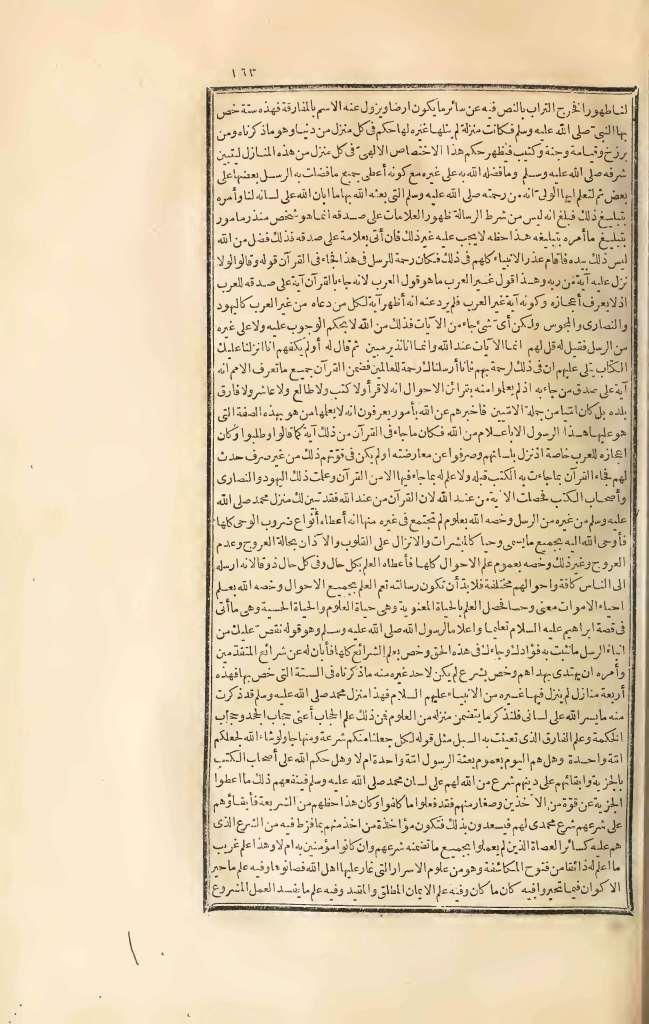 ١٦٣
لنا طهورا فخرج التراب بالنص فيه عن سائر ما يكون ارضا ويزول عنه الاسم بالمفارقة فهذه ستة خص
بها النبي صلى الله عليه وسلم فكانت منزلة لم ينلها غيره لها حكم في كل منزل من دنيا وهو ما ذكرناه ومن
برزخ وقيامة وجنة وكثيب فظهر حكم هذا الاختصاص الالهي في كل منزل من هذه المنازل ليتبين
شرفه صلى الله عليه وسلم وما فضله الله به على غيره مع كونه أعطى جميع ما فضلت به الرسل بعضها على
بعض ثم لتعلم ايها الولى انه من رحمته صلى الله عليه وسلم التى بعثه الله بها ما ابان الله على لسانه لنا وأمره
بتبليغ ذلك فبلغ انه ليس من شرط الرسالة ظهور العلامات على صدقه انما هو شخص منذر مأمور
بتبليغ ما أمره بتبليغه هذا حظه لا يجب عليه غير ذلك فان أتى بعلامة على صدقه فذلك فضل من الله
ليس ذلك بيده فاقام عذر الانبياء كلهم في ذلك فكان رحمة للرسل في هذا فجاء في القرآن قوله وقالوا لولا
نزل عليه آية من ربه وهذا قول غير العرب ما هو قول العرب لانه جاء بالقرآن آية على صدقه للعرب
اذ لا يعرف اعجازه وكونه آية غير العرب فلم يرد عنه انه أظهر آية لكل من دعاه من غير العرب كاليهود
والنصارى والمجوس ولكن أى شئ جاء من الآيات فذلك من الله لا بحكم الوجوب عليه ولا على غيره
من الرسل فقيل له قل لهم انما الآيات عند الله وانما انا نذير مبين ثم قال له أولم يكفهم انا انزلنا عليك
الكتاب يتلى عليهم ان في ذلك لرحمة بهم فانا أرسلناك رحمة للعالمين فضمن القرآن جميع ما تعرف الامم انه
آية على صدق من جاء به اذ لم يعلموا منه بقرائن الاحوال انه لا قرأ ولا كتب ولا طالع ولا عاشر ولا فارق
بلده بل كان اميا من جملة الاميين فاخبرهم عن الله بأمور يعرفون انه لا يعلمها من هو بهذه الصفة التى
هو عليها هذا الرسول الا باعلام من الله فكان ما جاء في القرآن من ذلك آية كما قالوا وطلبوا وكان
اعجازه للعرب خاصة اذ نزل بلسانهم وصرفوا عن معارضته او لم يكن في قوتهم ذلك من غير صرف حدث
لهم فجاء القرآن بما جاءت به الكتب قبله ولا علم له بما جاء فيها الا من القرآن وعلمت ذلك اليهود والنصارى
وأصحاب الكتب فحصلت الآية من عند الله لان القرآن من عند الله فقد تبين لك منزل محمد صلى الله
عليه وسلم من غيره من الرسل وخصه الله بعلوم لم تجتمع في غيره منها انه أعطاه أنواع ضروب الوحى كلها
فأوحى الله اليه بجميع ما يسمى وحيا كالمبشرات والانزال على القلوب والآذان بحالة العروج وعدم
العروج وغير ذلك وخصه بعموم علم الاحوال كلها فأعطاه العلم بكل حال وفى كل حال ذوقا لانه ارسله
الى الناس كافة واحوالهم مختلفة فلا بد أن تكون رسالته تعم العلم بجميع الاحوال وخصه الله بعلم
احياء الاموات معنى وحسا فحصل العلم بالحياة المعنوية وهى حياة العلوم والحياة الحسية وهى ما أتى
في قصة ابراهيم عليه السلام تعليما واعلاما لرسول الله صلى الله عليه وسلم وهو قوله نقص عليك من
انباء الرسل ما نثبت به فؤادك وجاءك في هذه الحق وخص بعلم الشرائع كلها فأبان له عن شرائع المتقدمين
وأمره ان يهتدى بهداهم وخص بشرع لم يكن لاحد غيره منه ما ذكرناه في الستة التى خص بها فهذه
أربعة منازل لم ينزل فيها غيره من الانبياء عليهم السلام فهذا منزل محمد صلى الله عليه وسلم قد ذكرت
منه ما يسر الله على لسانى فلنذكر ما يتضمن منزله من العلوم فمن ذلك علم الحجاب أعنى حجاب الجحد وحجاب
الحكمة وعلم الفارق الذى تعينت به السبل مثل قوله لكل جعلنا منكم شرعة ومنهاجا ولو شاء الله لجعلكم
امّة واحدة وهل هم اليوم بعموم بعثة الرسول امّة واحدة ام لا وهل حكم الله على أصحاب الكتب
بالجزية وابقائهم على دينهم شرع من الله لهم على لسان محمد صلى الله عليه وسلم فينفعهم ذلك ما اعطوا
الجزية عن قوّة من الآخذين وصغار منهم فقد فعلوا ما كلفوا وكان هذا حظهم من الشريعة فأبقاؤهم
على شرعهم شرع محمدى لهم فيسعدون بذلك فتكون مؤاخذة من اخذ منهم بما فرّط فيه من الشرع الذى
هم عليه كسائر العصاة الذين لم يعملوا بجميع ما تضمنه شرعهم وان كانوا مؤمنين به ام لا وهذا علم غريب
ما اعلم له ذائقا من فتوح المكاشفة وهو من علوم الاسرار التى غار عليها اهل الله فصانوها وفيه علم ما حير
الاكوان فيما تحيروا فيه كان ما كان وفيه علم الايمان المطلق والمقيد وفيه علم ما يفسد العمل المشروع